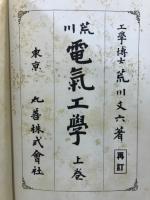 工學博士 荒川文六著
再訂
荒川
電氣工學
上卷
東京 丸善株式會社